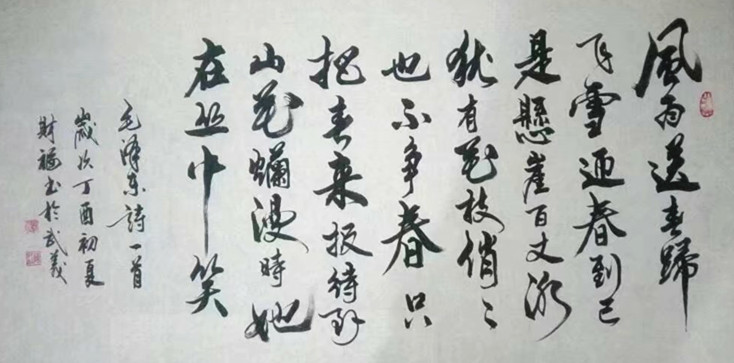 風雨送春歸
飞雪迎春到已
是懸崖百丈冰
犹有花枝俏〻
也不争春只
把春来报待到
山花爛漫時她
在丛中笑
毛澤东詩一首
歲次丁酉初夏
財福书於武義